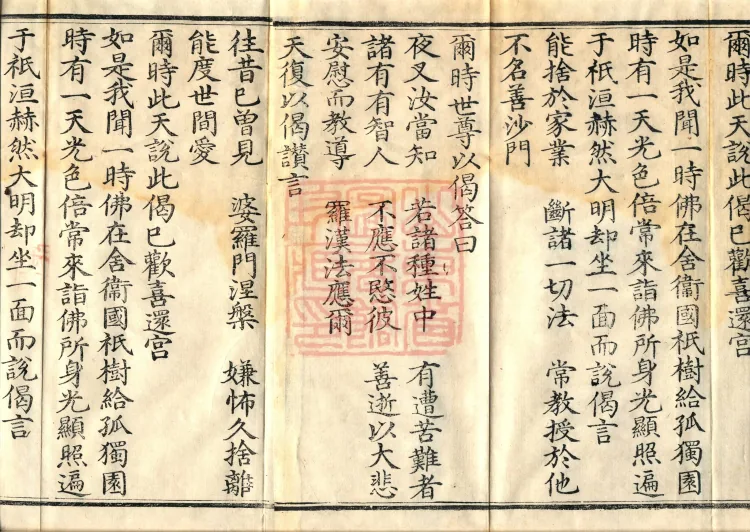 爾時此天說此偈已歡喜還宮
如是我聞一時佛在舍衞國祇樹給孤獨園
時有一天光色倍常來詣佛所身光顯照遍
于祇洹赫然大明却坐一面而說偈言
能捨於家業　斷諸一切法　常教授於他
不名善沙門
爾時世尊以偈答曰
夜叉汝當知　若諸種姓中　有遭苦難者
諸有有智人　不應不愍彼　善逝以大悲
安慰而教導　羅漢法應爾
天復以偈讚言
往昔已曾見　婆羅門涅槃　嫌怖久捨離
能度世間愛
爾時此天說此偈已歡喜還宮
如是我聞一時佛在舍衞國祇樹給孤獨園
時有一天光色倍常來詣佛所身光顯照遍
于祇洹赫然大明却坐一面而說偈言